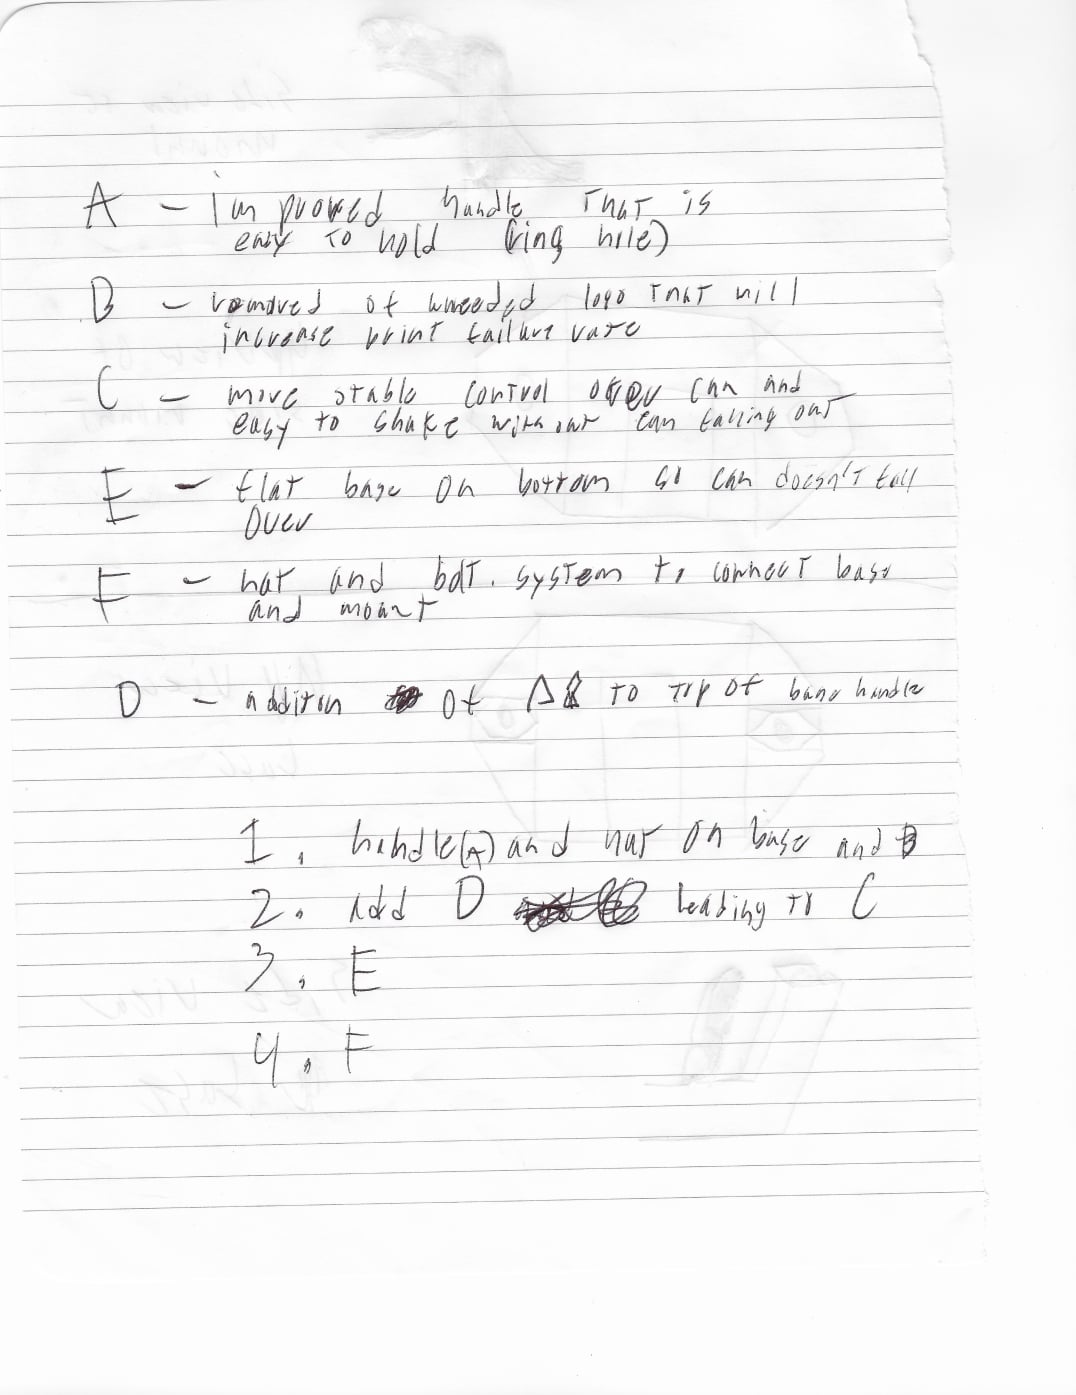 A - Improved handle That is
easy to hold (ring hole)
B - removed of unneeded logo That will
increase print failure rate
C - more stable control over can and
easy to shake without can falling out
E - flat base on bottom so can doesn't fall
over
F - nut and bolt system to connect base
and mount
D - additon of to top of handle
1. handle(A) and nut on base and B
2. Add D leading to C
3. E
4. F